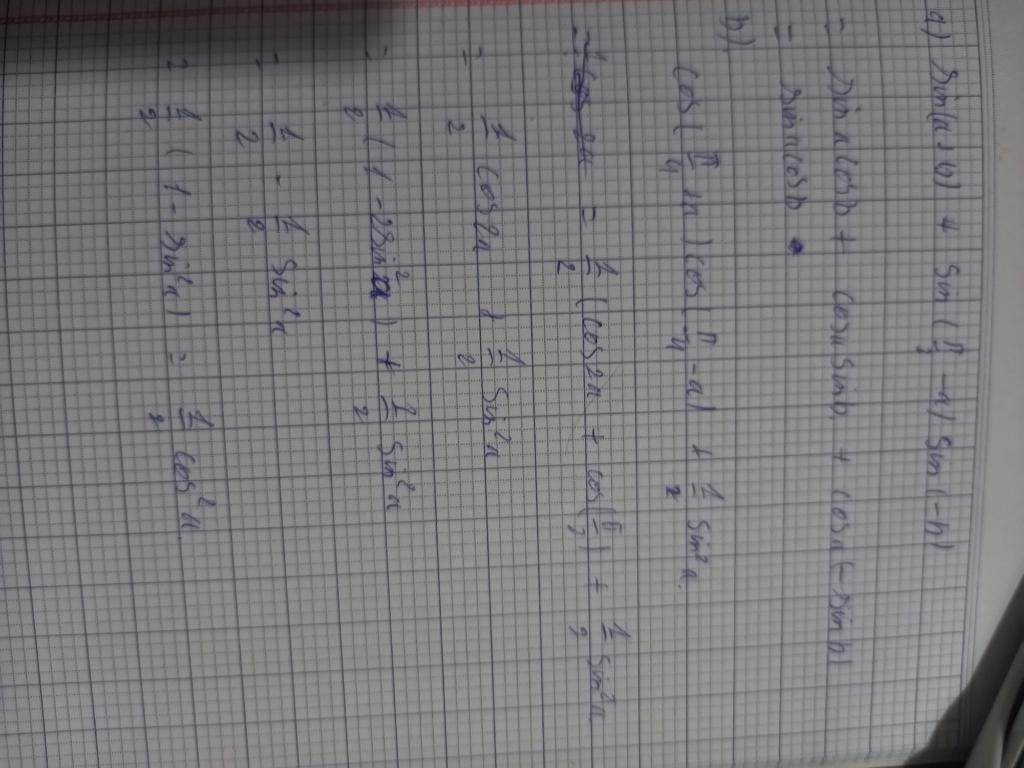 a) sin(a+b) + sin(π/2 -a) sin(-b)
= sin a cos b + cos a sin b + cos a (-sin b)
= sin a cos b
b)
cos(π/4 +a) cos(π/4 -a) + 1/2 sin²a
= 1/2 (cos 2a + cos(π/2)) + 1/2 sin²a
= 1/2 cos 2a + 1/2 sin²a
= 1/2 (1 -2sin²a) + 1/2 sin²a
= 1/2 - 1/2 sin²a
= 1/2 (1 - sin²a) = 1/2 cos²a